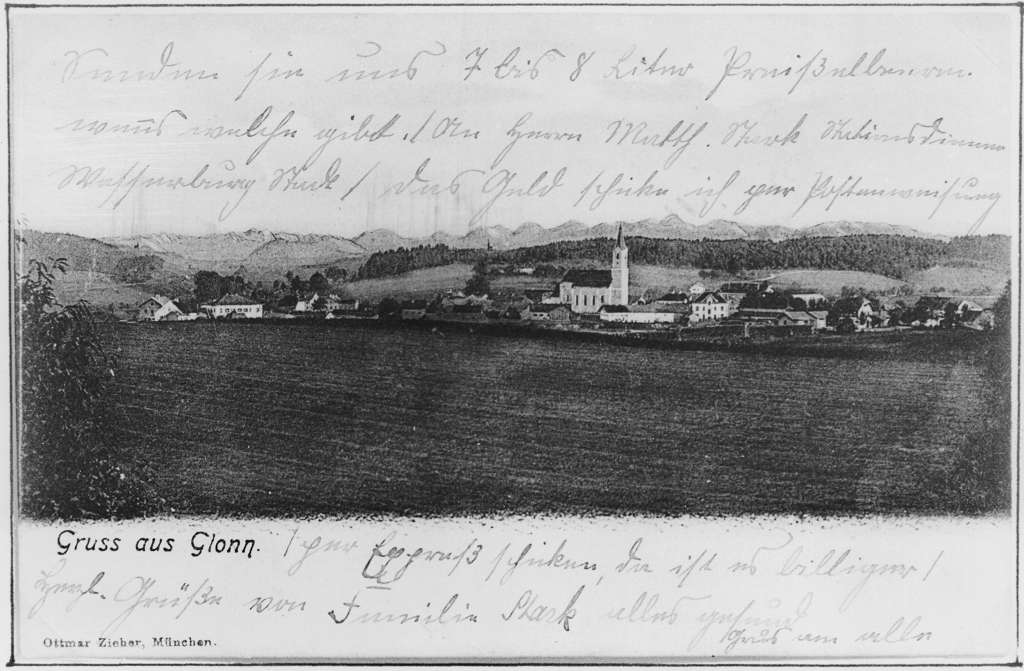 Senden sie uns 7 bis 8 Liter Preißelbeeren.
wenns welche gibt. / An Herrn Matth. Stark Stationsdiener
Wasserburg Stadt / das Geld schicke ich per Postanweisung
Gruss aus Glonn. / per Expreß schicken, da ist es billiger /
Herzl. Grüße von Familie Stark alles gesund
Gruß an alle
Ottmar Zieher, München.